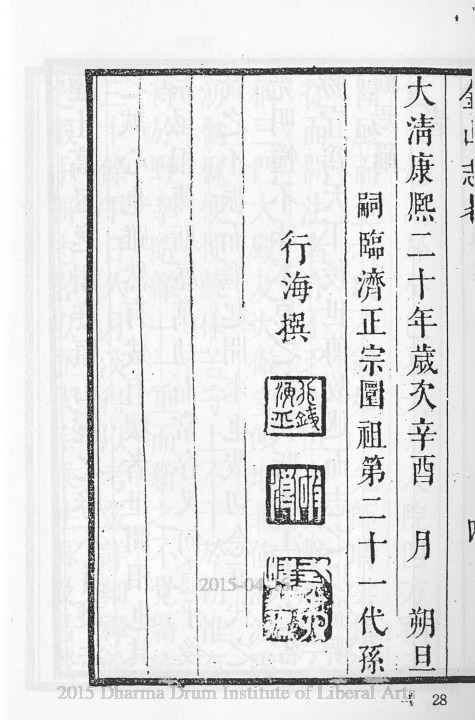 大清康熙二十年歲次辛酉 月 朔旦
嗣臨濟正宗圜祖第二十一代孫
行海撰
2015 Dharma Drum Institute of Liberal Arts
28